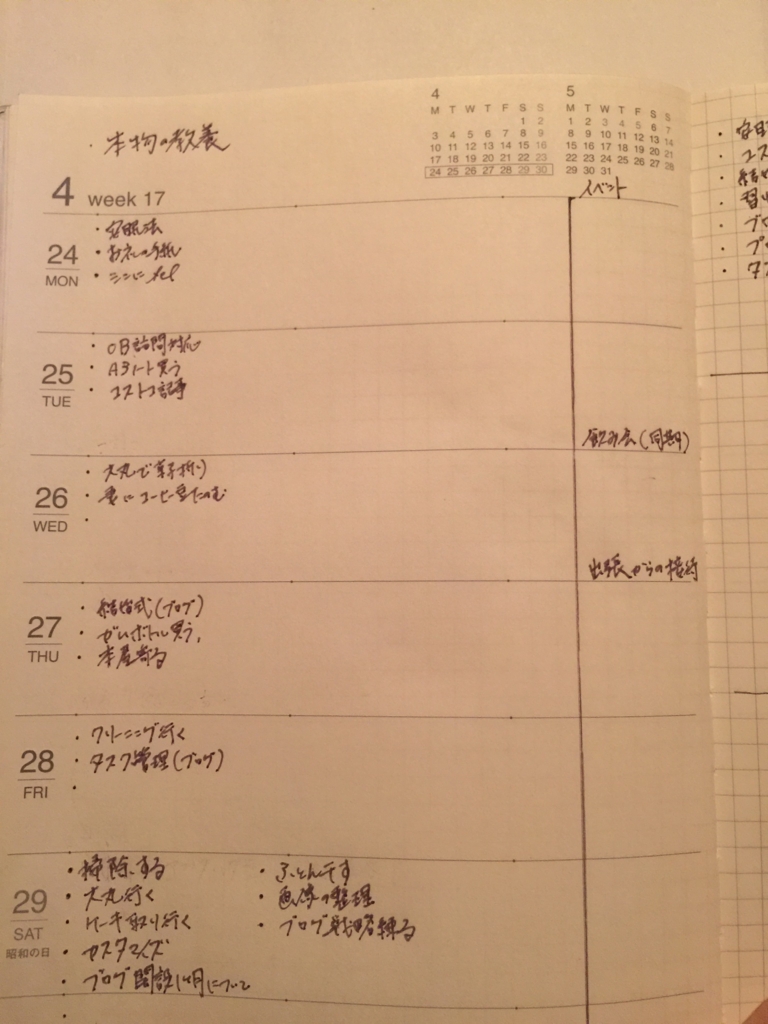 ・本物の教養
4
M T W T F S S
1 2
3 4 5 6 7 8 9
10 11 12 13 14 15 16
17 18 19 20 21 22 23
24 25 26 27 28 29 30
5
M T W T F S S
1 2 3 4 5 6 7
8 9 10 11 12 13 14
15 16 17 18 19 20 21
22 23 24 25 26 27 28
29 30 31
4 week 17
イベント
24
MON
・安眠法
・お礼の手紙
25
TUE
・OB訪問対応
・A3ノート買う
・コストコ記事
飲み会(同期)
26
WED
・大丸で菓子折り
・妻にコーヒー豆たのむ
・
出張からの接待
27
THU
・結婚式(ブログ)
・ボトル買う、
・本屋寄る
28
FRI
・クリーニング行く
・タスク管理(ブログ)
・
29
SAT
昭和の日
・掃除する
・大丸行く
・ケーキ取り行く
・カスタマイズ
・ブログ開設1ヶ月について
・
・ふとん干す
・画像の整理
・ブログ戦略練る